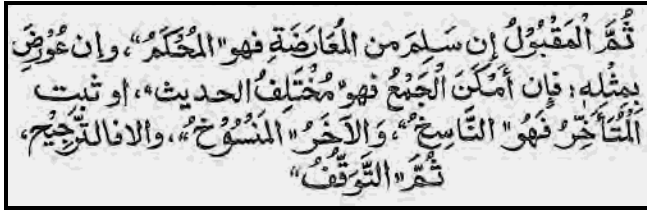 ثُمَّ الْمَقْبُوْلُ إِن سَلِمَ من الْمُعَارَضَةِ فهو "المُحْكَمُ"، وإن عُوْرِضَ
بِمِثْلِهٖ: فإِن أَمْكَنَ الْجَمْعُ فهو "مُخْتَلِفُ الحديث"، او ثبت
الْمُتَأَخِّرُ فَهُوَ "النَّاسِخُ"، وَالآخَرُ "المَنْسُوْخُ"، والا فالتَّرْجِيْح،
ثُمَّ "التَّوَقُّفُ"